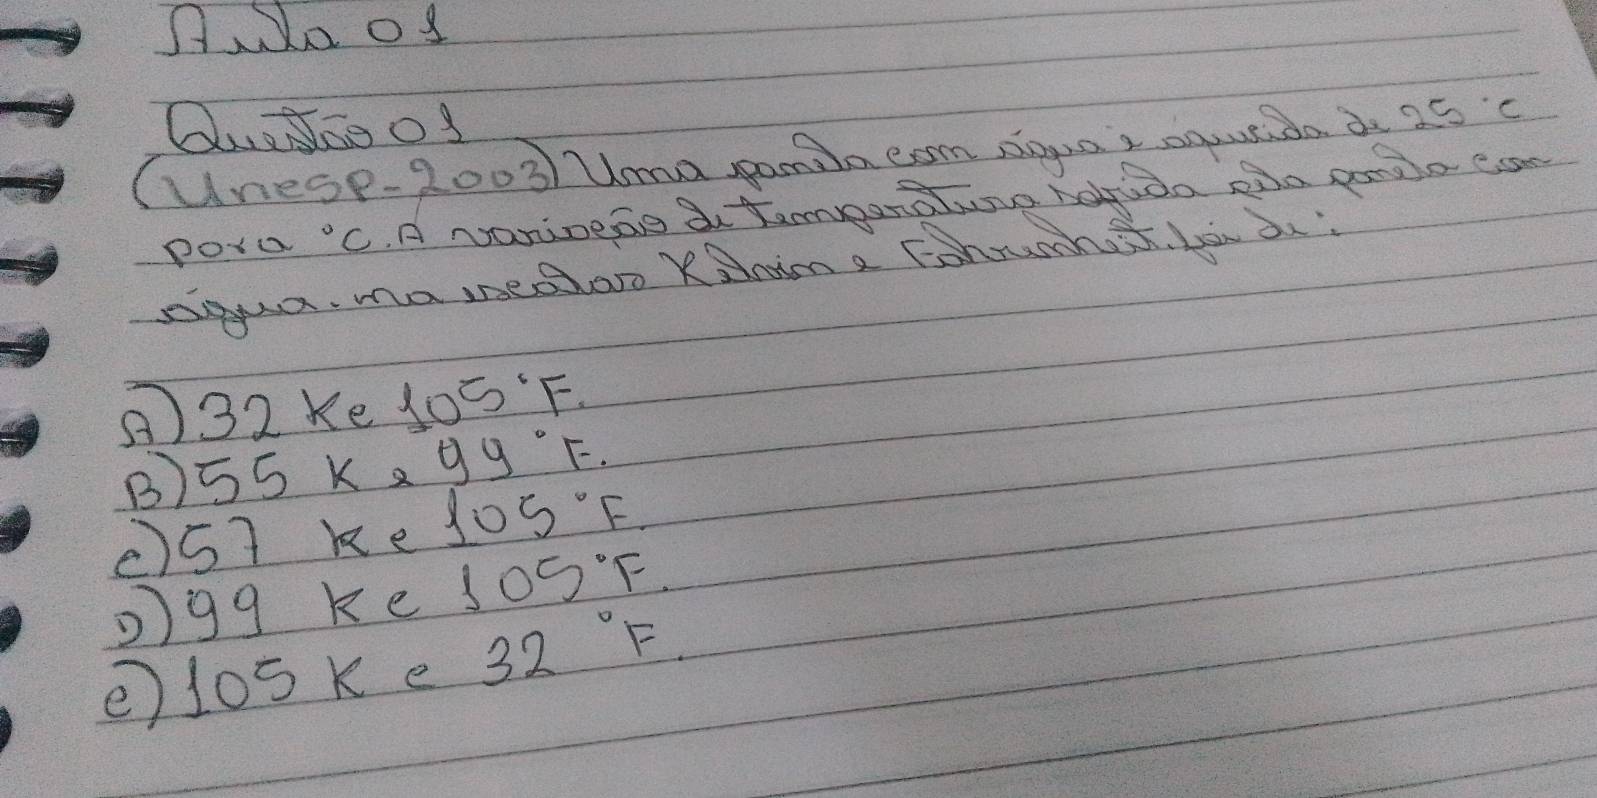 Aula 01
Questão 01
(Unesp-2003) Uma panela com água é aquecida de 25 °C
para °C. A variação de temperatura sofrida pela panela com
água. na escalas Kelvin e Fahrenheit. foi de:
A) 32 K e 105 °F.
B) 55 K e 99 °F.
c) 57 K e 105 °F.
D) 99 K e 105 °F.
e) 105 K e 32 °F.